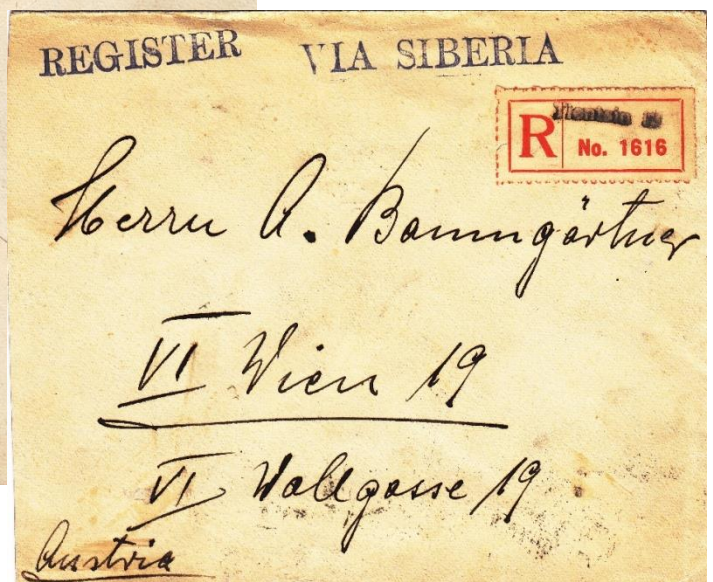 REGISTER VIA SIBERIA
R Tientsin
No. 1616
Herrn A. Baumgärtner
VI Wien 19
VI Wallgasse 19
Austria